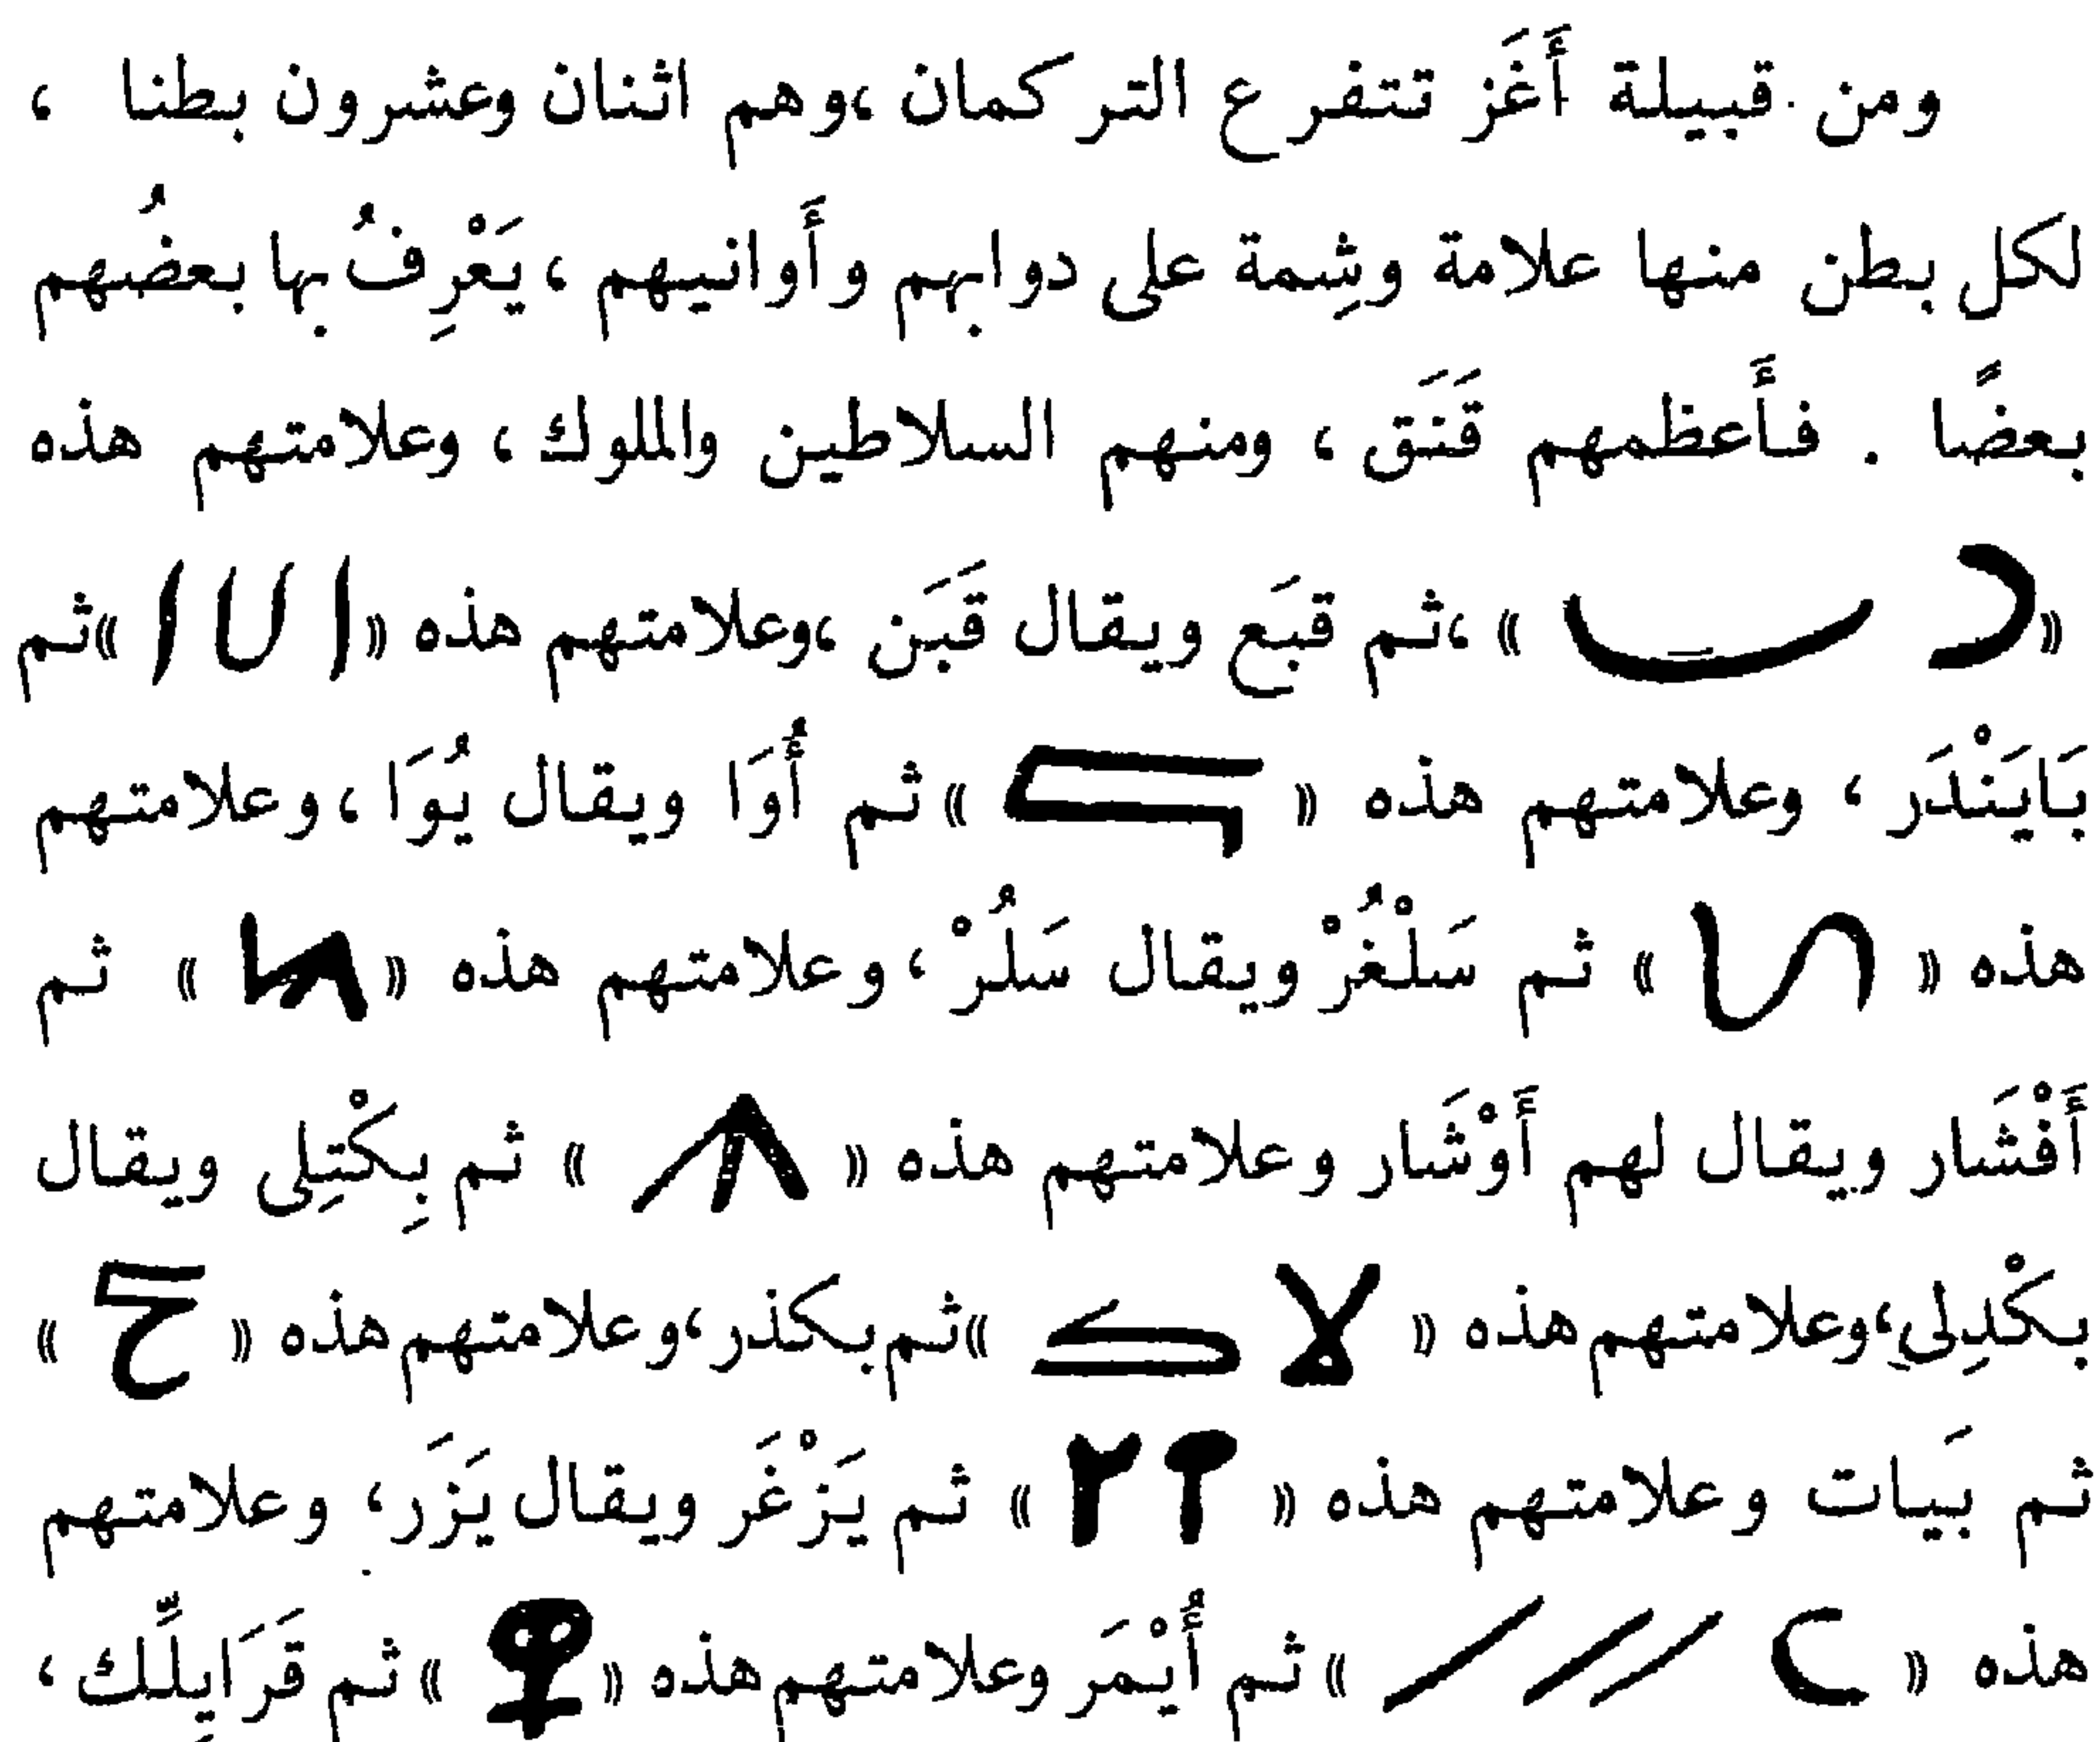 ومن قبيلة أَغَز تتفرع التركمان ، وهم اثنان وعشرون بطنا ،
لكل بطن منها علامة وشِمة على دوابهم وأَوانيهم ، يَعْرِفُ بها بعضُهم
بعضًا . فأَعظمهم قَنَق ، ومنهم السلاطين والملوك ، وعلامتهم هذه
« » ، ثم قبَع ويقال قَبَن ، وعلامتهم هذه « » ثم
بَايَنْدَر ، وعلامتهم هذه « » ثم أُوَا ويقال يُوَا ، وعلامتهم
هذه « » ثم سَلْغُرْ ويقال سَلُرْ ، وعلامتهم هذه « » ثم
أَفْشَار ويقال لهم أَوْشَار وعلامتهم هذه « » ثم بِكْتِلى ويقال
بكْدِلي ، وعلامتهم هذه « » ثم بكذر ، وعلامتهم هذه « »
ثم بَيات وعلامتهم هذه « » ثم يَزْغَر ويقال يَزَر ، وعلامتهم
هذه « » ثم أُيْمَر وعلامتهم هذه « » ثم قَرَايِلَّك ،